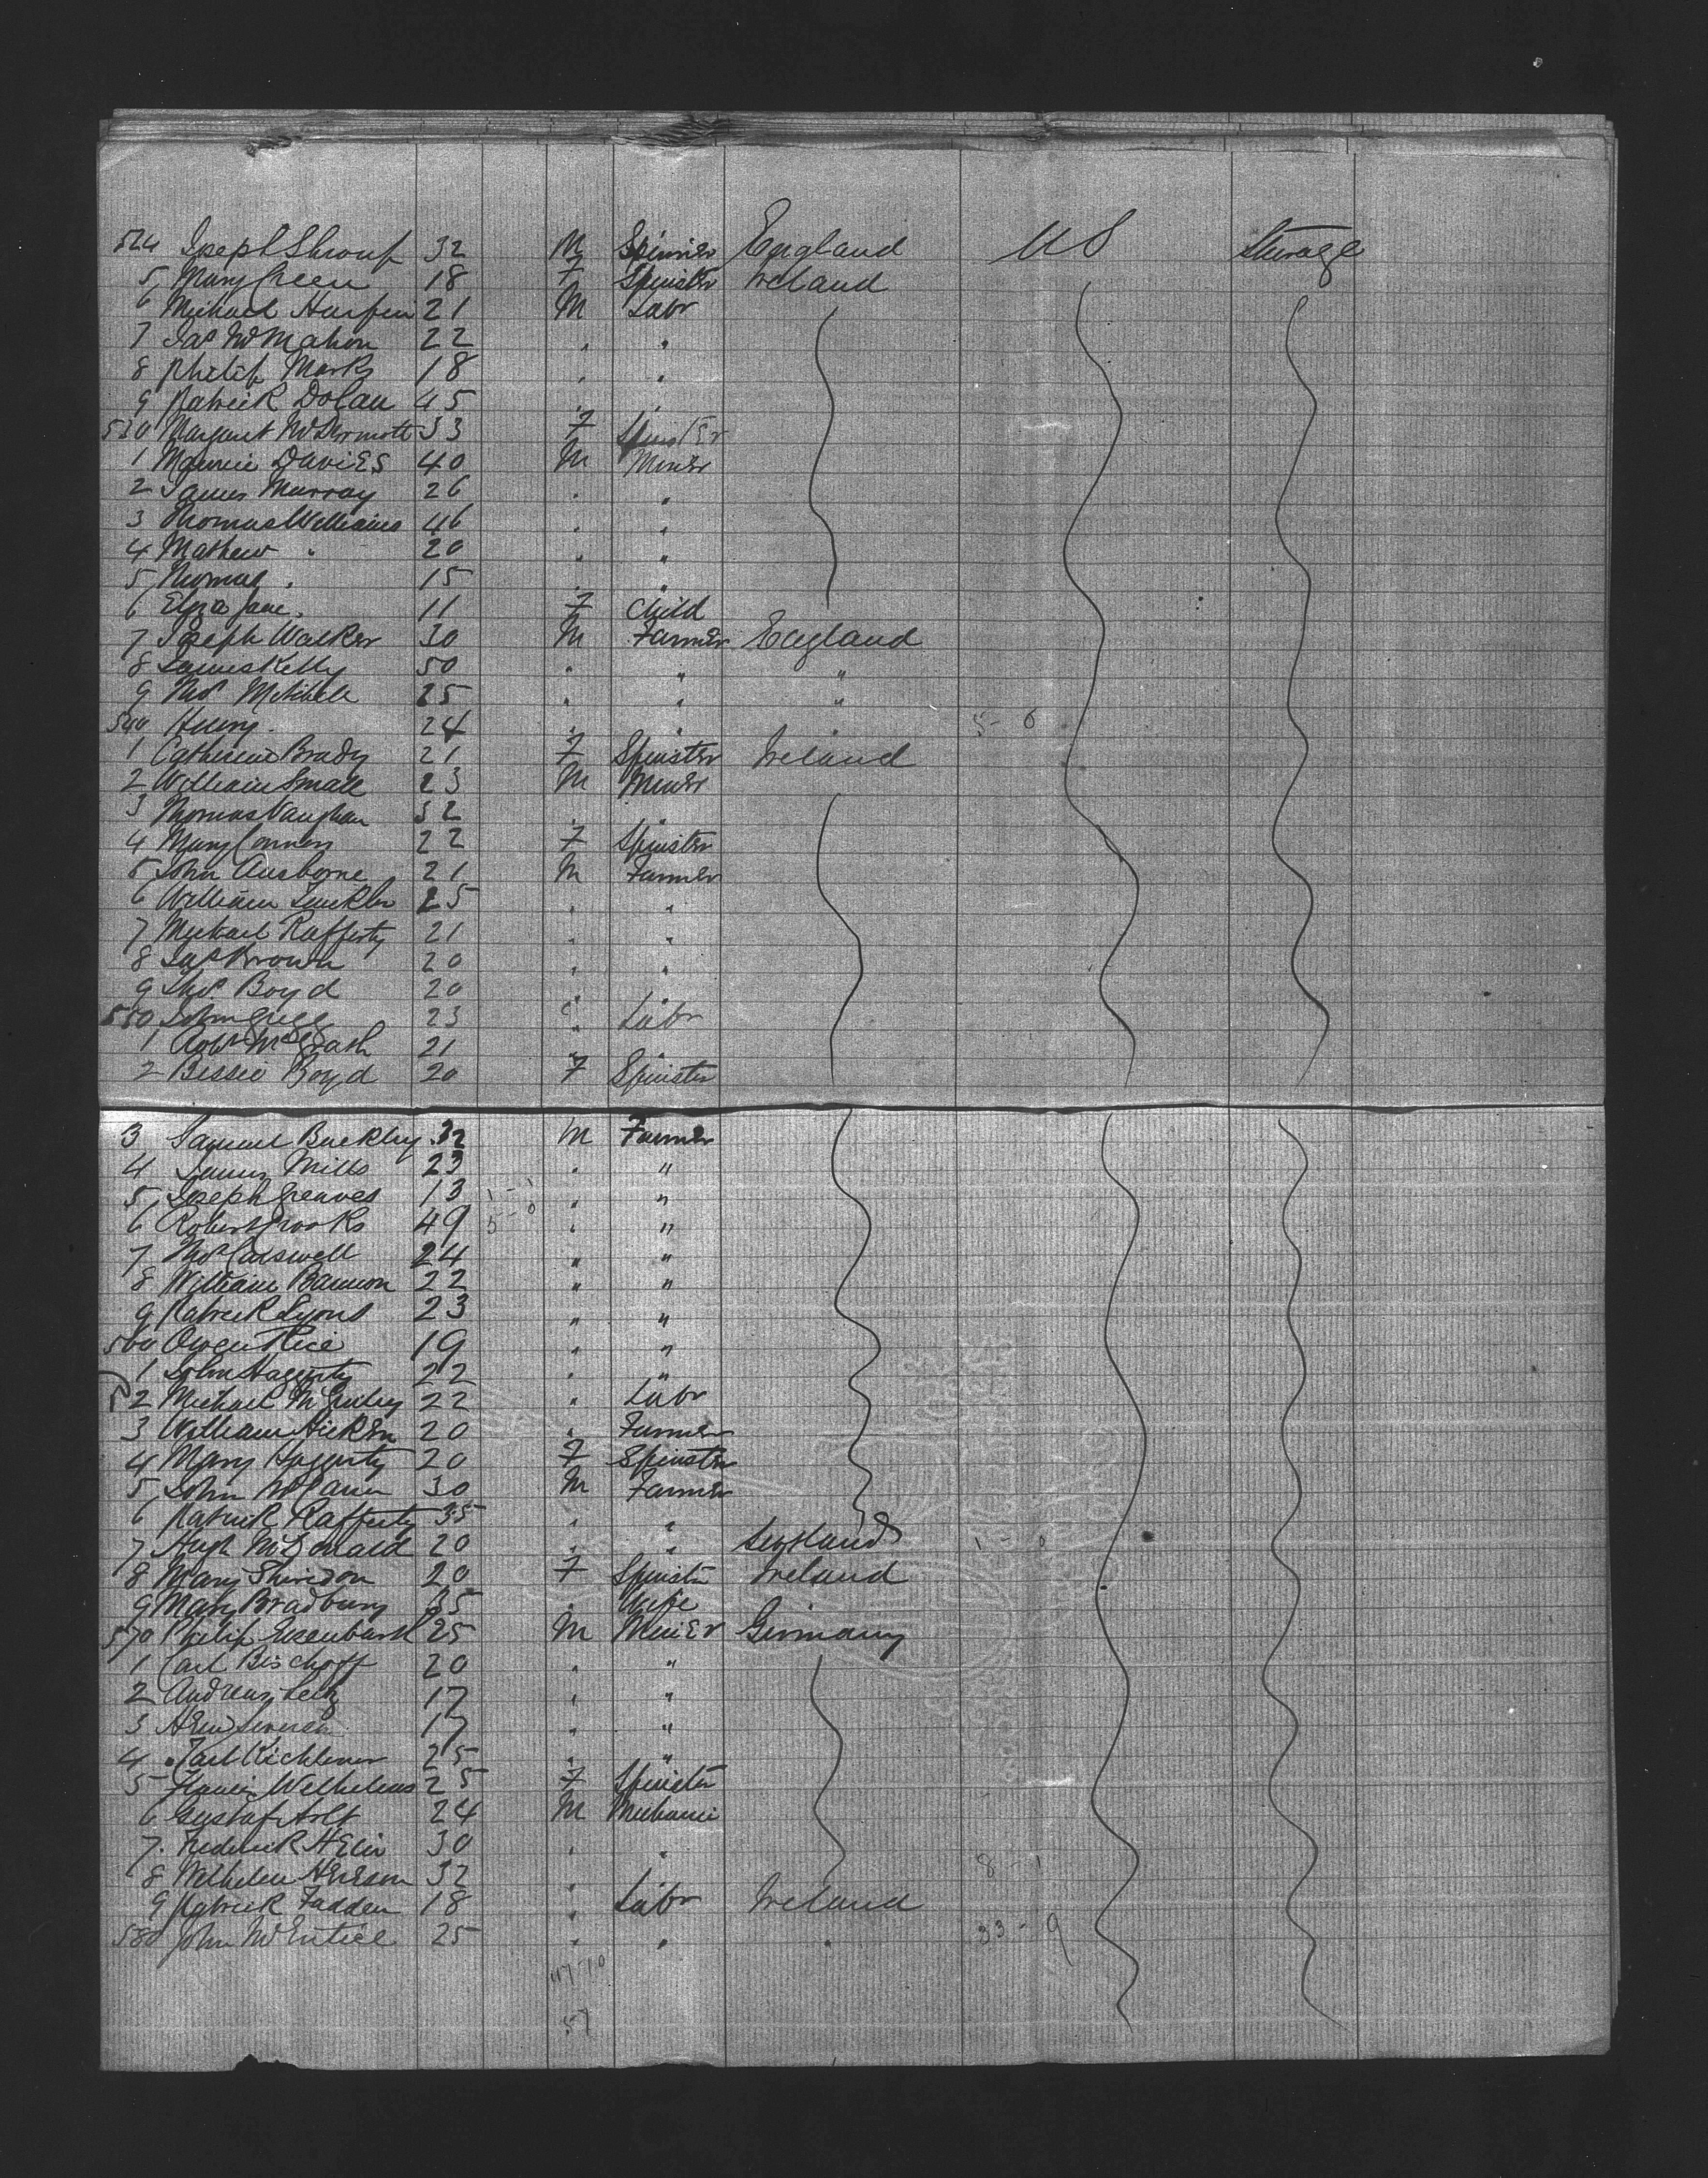 524 Joseph Shrouf 32 M Spinner England US Steerage
5 Mary Green 18 F Spinster Ireland
6 Michael 21 M Labr
7 Jas McMahon 22 " "
8 Philip Marks 18 " "
9 Patrick Dolan 45 " "
530 Margaret McDermott 33 F Spinster
1 Davies 40 M Miner
2 James Murray 26 " "
3 Thomas Williams 46 " "
4 Mathew " 20 " "
5 Thomas " 15 " "
6 Eliza Jane " 11 F Child
7 Joseph Walker 30 M Farmer England
8 James Kelly 50 " " "
9 Thos Mitchell 25 " " "
540 Henry " 24 " " " 5-6
1 Catherine Brady 21 F Spinster Ireland
2 William Small 23 M Miner
3 Thomas Vaughan 32 " "
4 Mary Connors 22 F Spinster
5 John Ausborne 21 M Farmer
6 William 25 " "
7 Michael Rafferty 21 " "
8 Jas Brown 20 " "
9 Thos Boyd 20 "
550 John Gregg 23 " Labr
1 Robt McGrath 21 "
2 Bessie Boyd 20 F Spinster
3 Samuel Buckley 32 M Farmer
4 James Mills 23 " "
5 Joseph Greaves 13 " "
6 Robert Crooks 49 " "
7 Thos Carswell 24 " "
8 William Bannon 22 " "
9 Patrick Lyons 23 " "
560 Owen Rice 19 " "
1 John Hagerty 22 " "
2 Michael 22 " Labr
3 William Hicken 20 " Farmer
4 Mary Hagerty 20 F Spinster
5 John McCann 30 M Farmer
6 Patrick Rafferty 35 " "
7 Hugh McDonald 20 " " Scotland 1-0
8 Mary Sheridon 20 F Spinster Ireland
9 Mary Bradbury 35 " Wife
570 Philip 25 M Miner Germany
1 Carl Bischoff 20 " "
2 Andreas 17 " "
3 17 " "
4 Carl 25 " "
5 Wilhelms 25 F Spinster
6 Gustaf Arlt 24 M Mechanic
7 Frederick Hein 30 " "
8 Wilhelm 32 " 8-1
9 Patrick Fadden 18 " Labr Ireland
580 John McEntiee 25 " " " 33-9
57